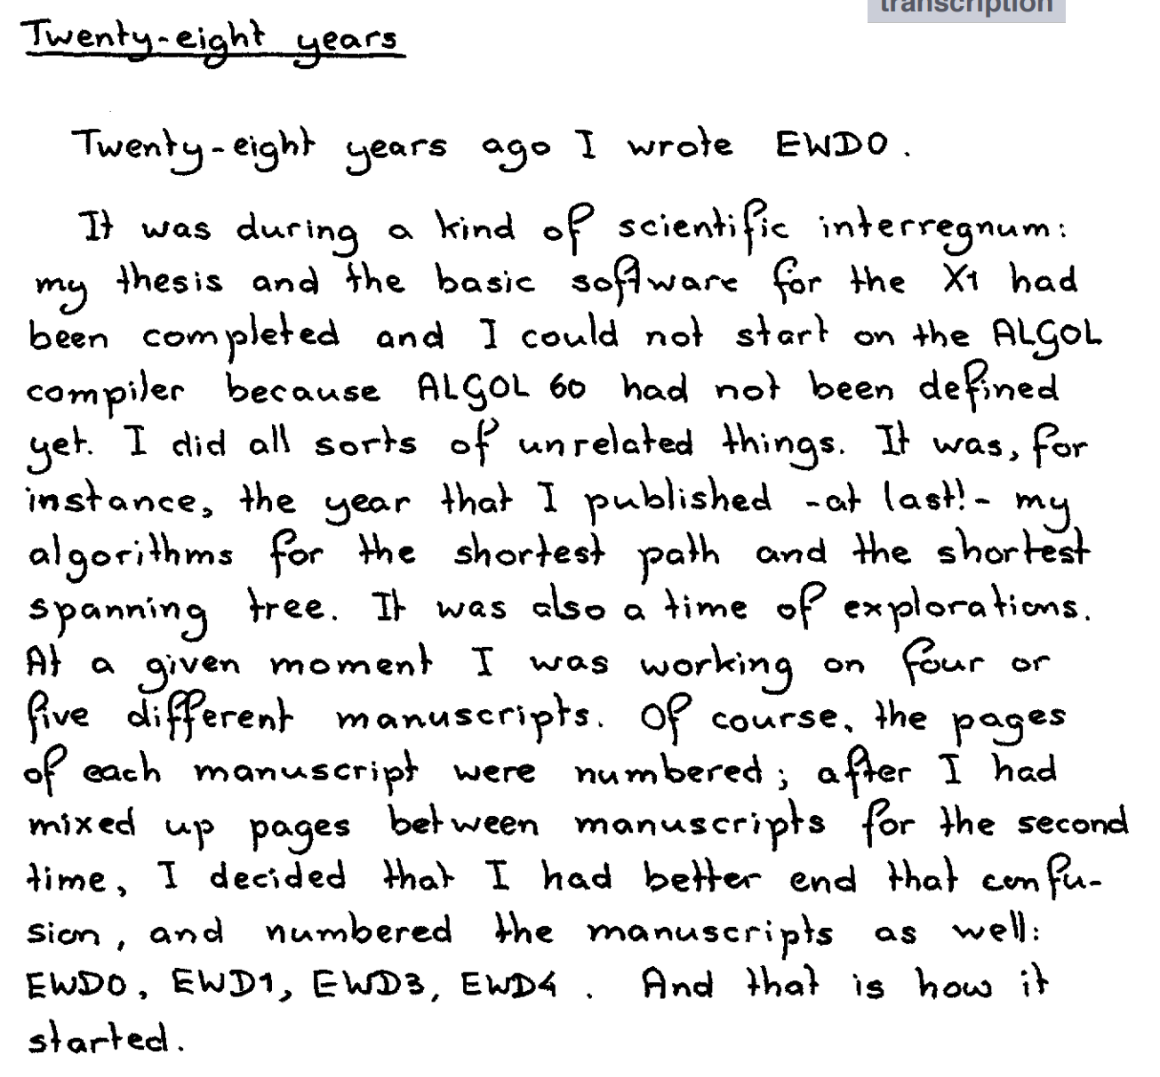 transcription
Twenty-eight years
Twenty-eight years ago I wrote EWD0.
It was during a kind of scientific interregnum:
my thesis and the basic software for the X1 had
been completed and I could not start on the ALGOL
compiler because ALGOL 60 had not been defined
yet. I did all sorts of unrelated things. It was, for
instance, the year that I published -at last!- my
algorithms for the shortest path and the shortest
spanning tree. It was also a time of explorations.
At a given moment I was working on four or
five different manuscripts. Of course, the pages
of each manuscript were numbered; after I had
mixed up pages between manuscripts for the second
time, I decided that I had better end that confu-
sion, and numbered the manuscripts as well:
EWD0, EWD1, EWD3, EWD4. And that is how it
started.